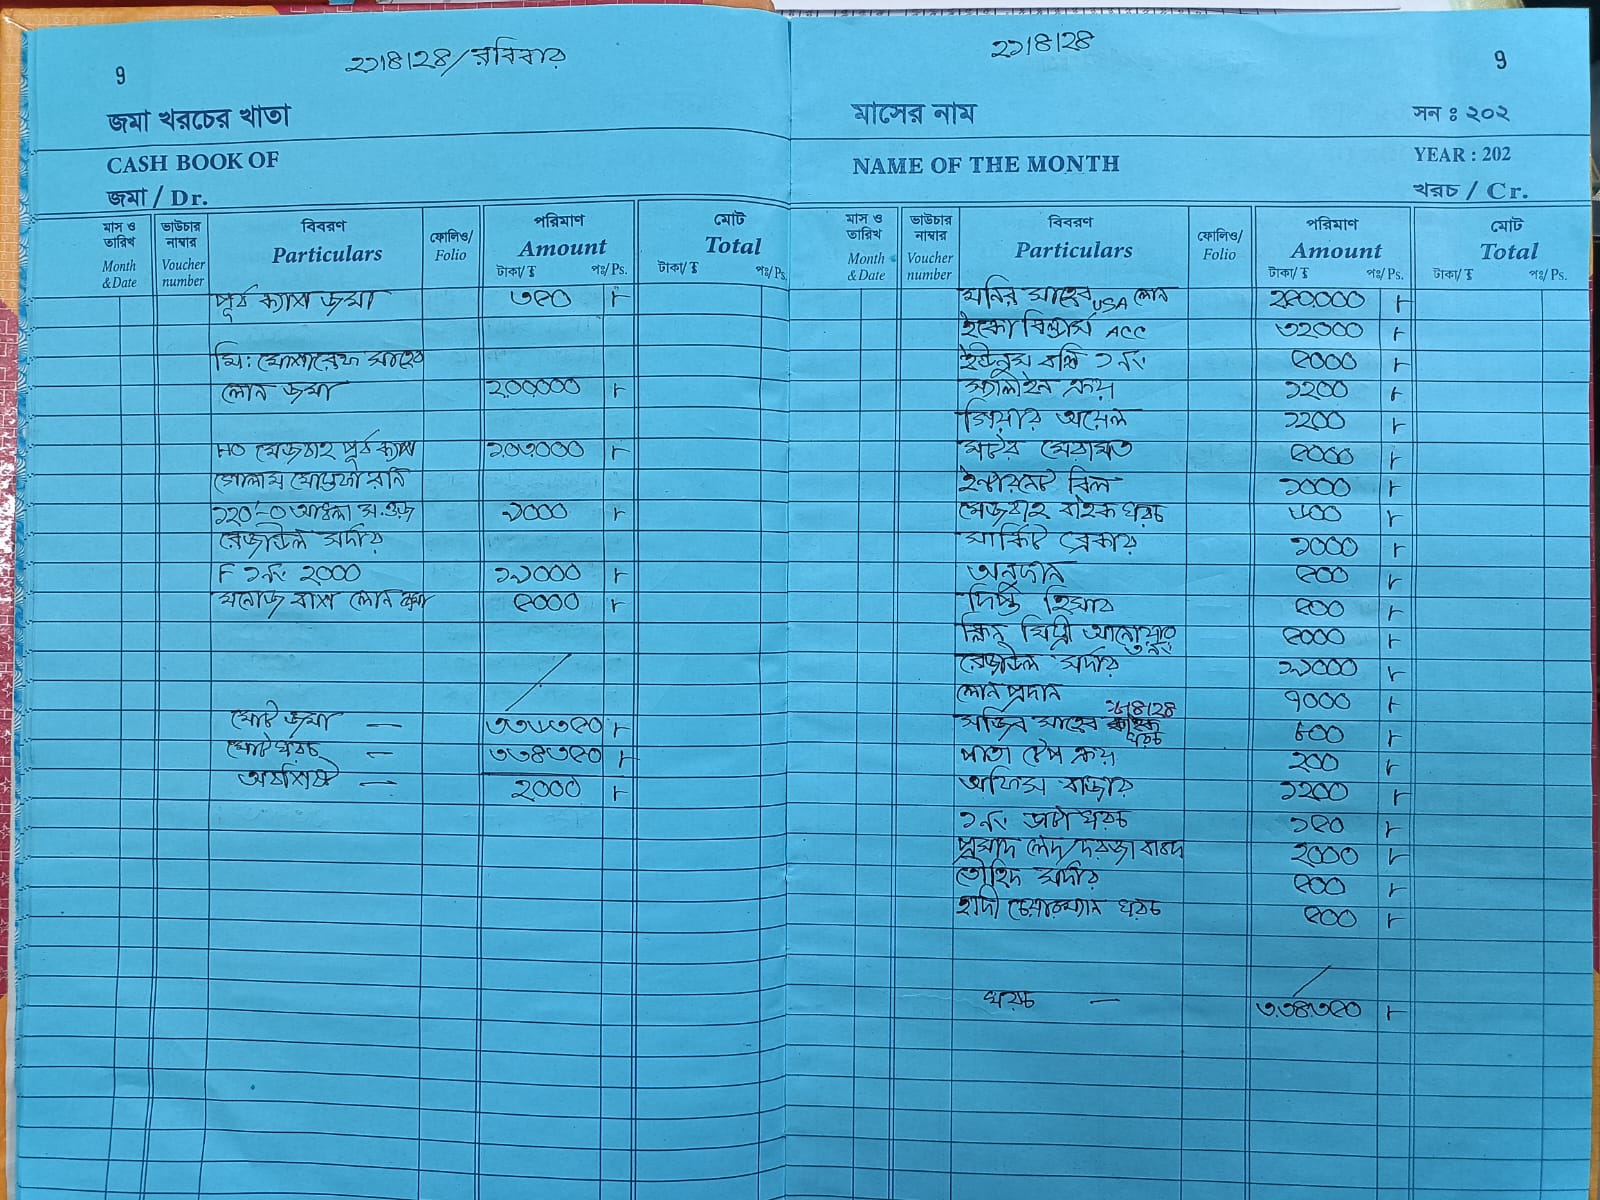 ৭
২১/৪/২৪/রবিবার
জমা খরচের খাতা
CASH BOOK OF
জমা / Dr.
মাস ও তারিখ Month & Date ভাউচার নাম্বার Voucher number বিবরণ Particulars ফোলিও/ Folio পরিমাণ Amount টাকা/ ₮ পঃ/ Ps. মোট Total টাকা/ ₮ পঃ/ Ps.
পূর্ব ক্যাশ জমা ৩৫০
মি: মোশারেফ সাহেব
লোন জমা ২০০০০০
HO মেজবাহ পূর্ব ক্যাশ ১০৩০০০
গোলাম মোস্তফা রনি
৯০০০
রেজাউল সর্দার
F ১নং ২০০০ ১৯০০০
মনোজ বাশ লোন জমা ৫০০০
মোট জমা — ৩৩৬৩৫০
মোট খরচ — ৩৩৪৩৫০
অবশিষ্ট — ২০০০
২১/৪/২৪
৭
মাসের নাম
সন : ২০২
NAME OF THE MONTH
YEAR : 202
খরচ / Cr.
মাস ও তারিখ Month & Date ভাউচার নাম্বার Voucher number বিবরণ Particulars ফোলিও/ Folio পরিমাণ Amount টাকা/ ₮ পঃ/ Ps. মোট Total টাকা/ ₮ পঃ/ Ps.
মনির সাহেব USA লোন ২৫০০০০
ইকো বিল্ডার্স ACC ৩২০০০
ইউনুস বালি ১নং ৫০০০
স্যালাইন ক্রয় ১২০০
গিয়ার অয়েল ১২০০
মটর মেরামত ৫০০০
ইন্টারনেট বিল ১০০০
মেজবাহ বাইক খরচ ৮০০
সার্কিট ব্রেকার ১০০০
অনুদান ৫০০
দিপু হিসাব ৫০০
মিস্ত্রী আনোয়ার ১নং ৫০০০
রেজাউল সর্দার ১৯০০০
লোন প্রদান ৭০০০
সজিব সাহেব বাইক খরচ ৬০০
পাতা টেপ ক্রয় ২০০
অফিস বাজার ১২০০
১নং খরচ ১৫০
প্রসাদ লেদ/দরজা বাবদ ২০০০
তৌহিদ সর্দার ৫০০
হাদী চেয়ারম্যান খরচ ৫০০
খরচ — ৩৩৪৩৫০